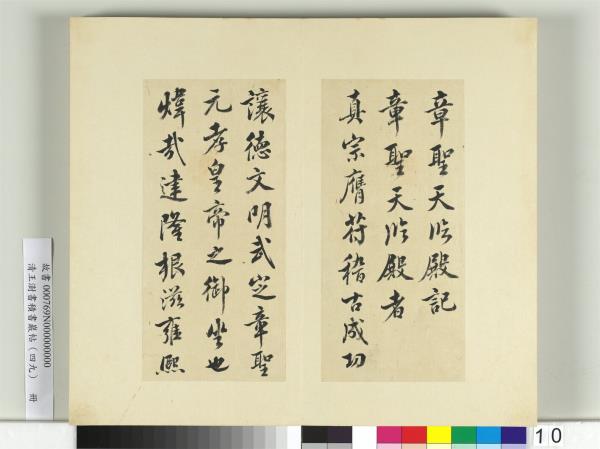 章聖天臨殿記
章聖天臨殿者
真宗膺符稽古成功
讓德文明武定章聖
元孝皇帝之御坐也
煒哉建隆根滋雍熙
故書000769N000000000
清王澍書積書巖帖（四九） 冊
10